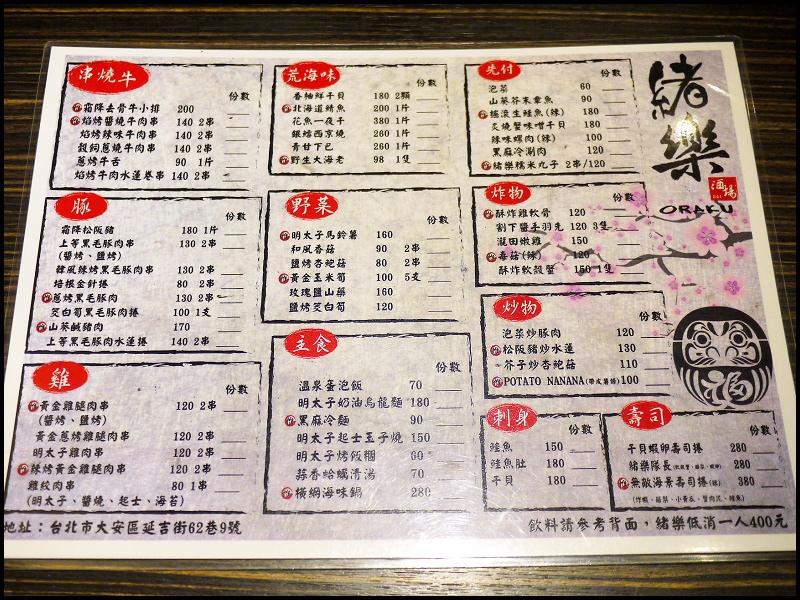 串燒牛
份數
霜降去骨牛小排 200
焰烤醬燒牛肉串 140 2串
焰烤辣味牛肉串 140 2串
穀飼蔥燒牛肉串 140 2串
蔥烤牛舌 90 1片
焰烤牛肉水蓮卷串 140 2串
豚
份數
霜降松阪豬 180 1片
上等黑毛豚肉串 130 2串
(醬烤、鹽烤)
韓風辣烤黑毛豚肉串 130 2串
培根金針捲 80 2串
蔥烤黑毛豚肉 130 2串
茭白筍黑毛豚肉捲 100 1支
山葵鹹豬肉 170
上等黑毛豚肉水蓮捲 140 2串
雞
份數
黃金雞腿肉串 120 2串
(醬烤、鹽烤)
黃金蔥烤雞腿肉串 120 2串
明太子雞肉串 120 2串
辣烤黃金雞腿肉串 120 2串
雞紋肉串 80 1串
(明太子、醬燒、起士、海苔)
荒海味
份數
番柚鮮干貝 180 2顆
北海道鯖魚 200 1片
花魚一夜干 380 1片
銀鱈西京燒 260 1片
青甘下巴 260 1片
野生大海老 98 1隻
野菜
份數
明太子馬鈴薯 160
和風香菇 90 2串
鹽烤杏鮑菇 80 2串
黃金玉米筍 100 5支
玫瑰鹽山藥 160
鹽烤茭白筍 120
主食
份數
溫泉蛋泡飯 70
明太子奶油烏龍麵 180
黑麻冷麵 90
明太子起士玉子燒 150
明太子烤飯糰 60
蒜香蛤蠣清湯 70
橫綱海味鍋 280
先付
份數
泡菜 60
山葵芥末章魚 90
搖滾生鮭魚(辣) 180
炙燒蟹味噌干貝 180
辣味螺肉(辣) 100
黑麻冷涮肉 120
緒樂糯米丸子 2串/120
炸物
份數
酥炸雞軟骨 120
割下鹽手羽先 120 3隻
瀧田嫩雞 150
120
酥炸軟殼蟹 150 1隻
炒物
份數
泡菜炒豚肉 120
松阪豬炒水蓮 130
芥子炒杏鮑菇 110
POTATO NANANA(帶皮薯條) 100
刺身
份數
鮭魚 150
鮭魚肚 180
干貝 180
壽司
份數
干貝蝦卵壽司捲 280
緒樂隊長 280
無敵海景壽司捲 380
緒樂
酒場
ORAKU
福
地址：台北市大安區延吉街62巷9號
飲料請參考背面，緒樂低消一人400元